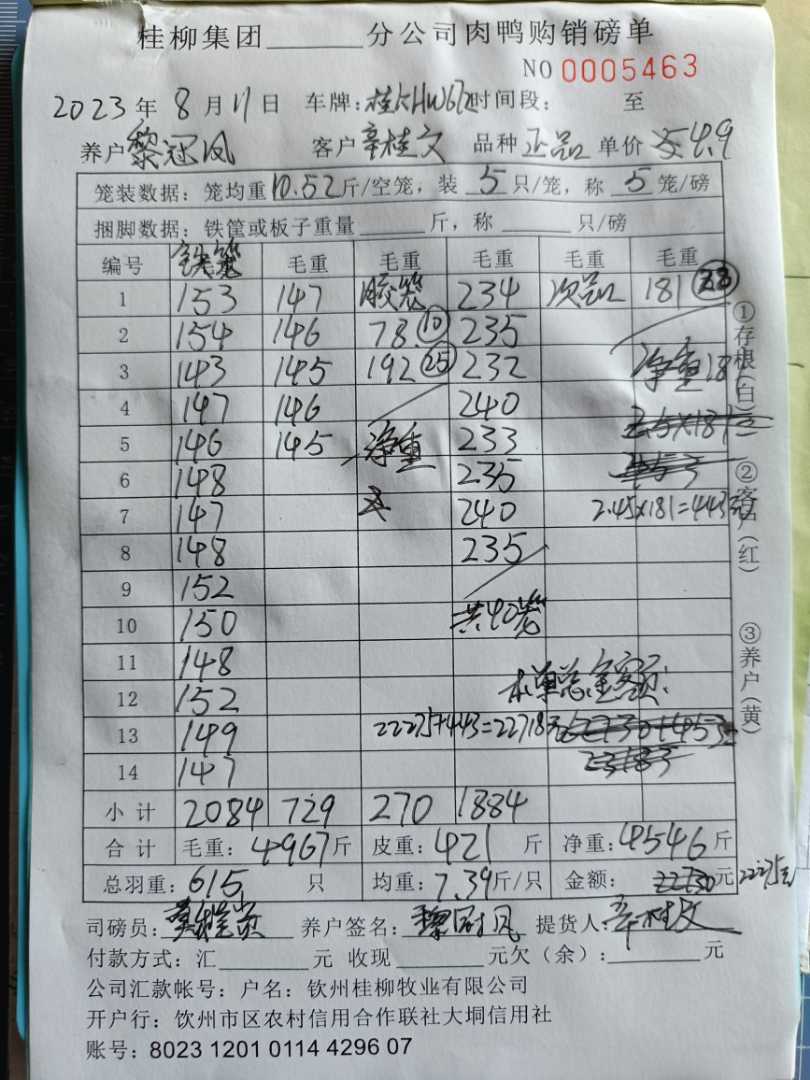 桂柳集团______分公司肉鸭购销磅单
NO 0005463
2023年 8月11日 车牌: 时间段: 至
养户 黎冠凤 客户 辛桂文 品种 正品 单价 4.9
笼装数据: 笼均重10.52斤/空笼, 装 5 只/笼, 称 5 笼/磅
捆脚数据: 铁筐或板子重量______斤, 称______只/磅
编号 铁笼 毛重 毛重 毛重 毛重 毛重
1 153 147 胶笼 234 次品 181 33
2 154 146 78 10 235
3 143 145 192 25 232 净重 181
4 147 146 240
5 146 145 净重 233 2.5×181=
6 148 235
7 147 240 2.45×181=443元
8 148 235
9 152
10 150 共40笼
11 148
12 152 本单总金额:
13 149 22275+443=22718元
14 147
小计 2084 729 270 1884
合计 毛重: 4967斤 皮重: 421 斤 净重: 4546斤
总羽重: 615 只 均重: 7.39斤/只 金额: 22730元 22275元
司磅员: 养户签名: 提货人: 辛桂文
付款方式: 汇______元 收现______元欠(余): ______元
公司汇款帐号: 户名: 钦州桂柳牧业有限公司
开户行: 钦州市区农村信用合作联社大垌信用社
账号: 8023 1201 0114 4296 07
①存根(白)
②客户(红)
③养户(黄)